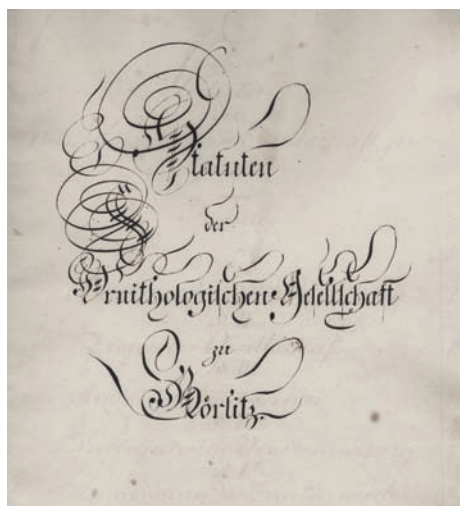 Statuten
der
Ornithologischen Gesellschaft
zu
Görlitz.